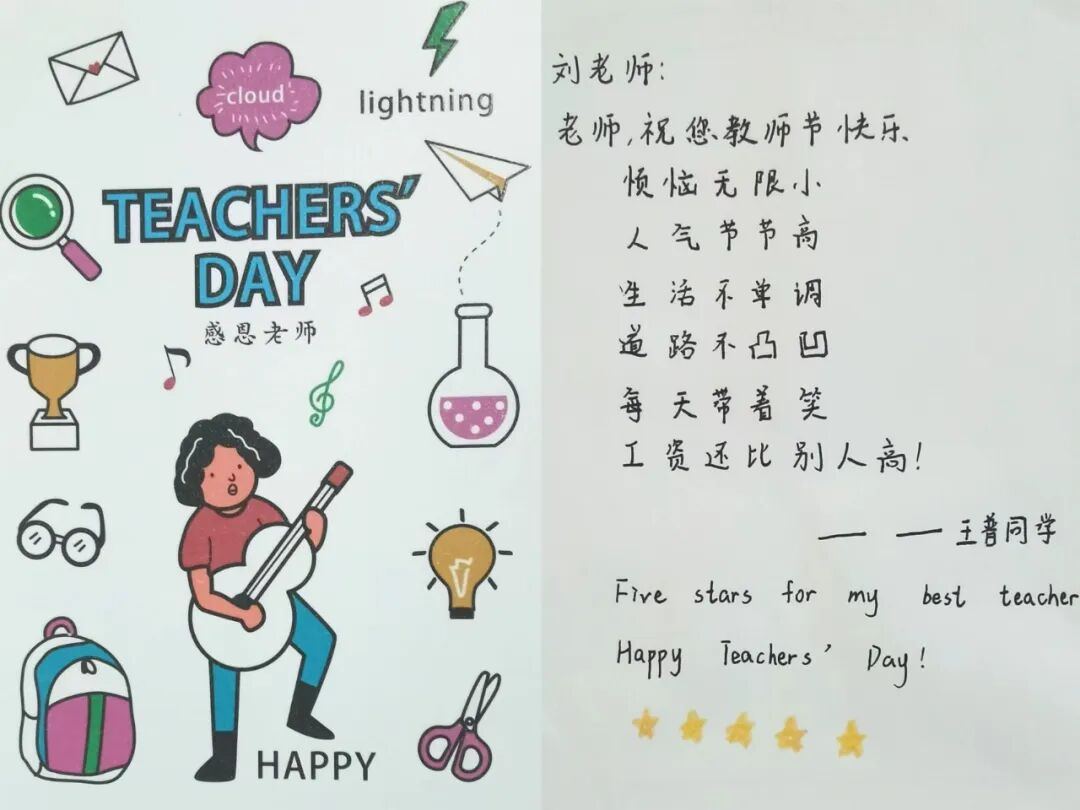 cloud
lightning
TEACHERS'
DAY
感恩老师
HAPPY
刘老师:
老师,祝您教师节快乐
烦恼无限小
人气节节高
生活不单调
道路不凸凹
每天带着笑
工资还比别人高!
—— ——王普同学
Five stars for my best teacher
Happy Teachers' Day!